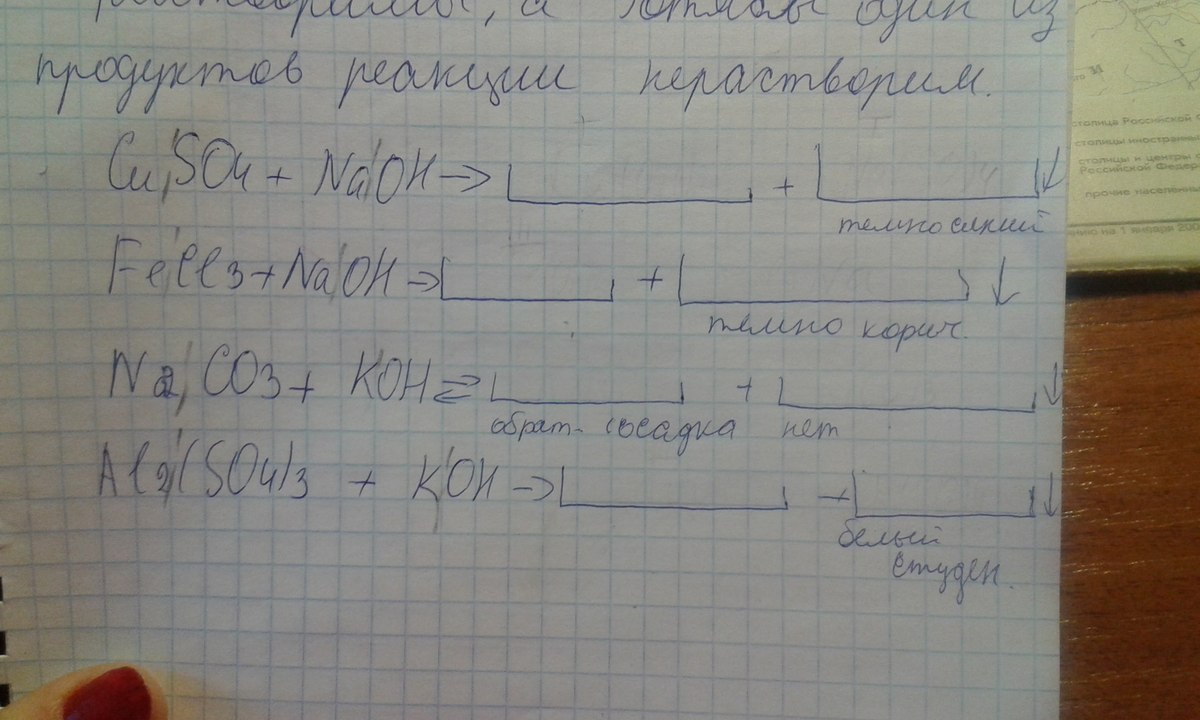 растворимы, а хотябы один из
продуктов реакции нерастворим.
CuSO4 + NaOH → +  ↓
темно синий
FeCl3 + NaOH → +  ↓
темно корич.
Na2CO3 + KOH ⇄ +  ↓
обрат- осадка нет
Al2(SO4)3 + KOH → +  ↓
белый
студен.
столица Российской
столицы иностранн
столицы и центры
Российской Федер
прочие населенн
на 1 января 200